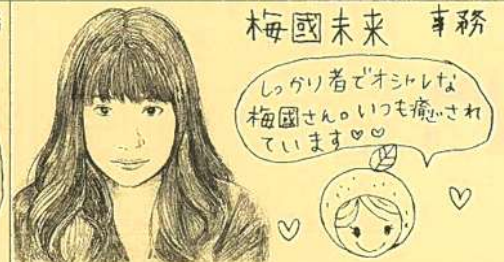 梅國未来 事務
しっかり者でオシャレな
梅國さん。いつも癒され
ています♡♡